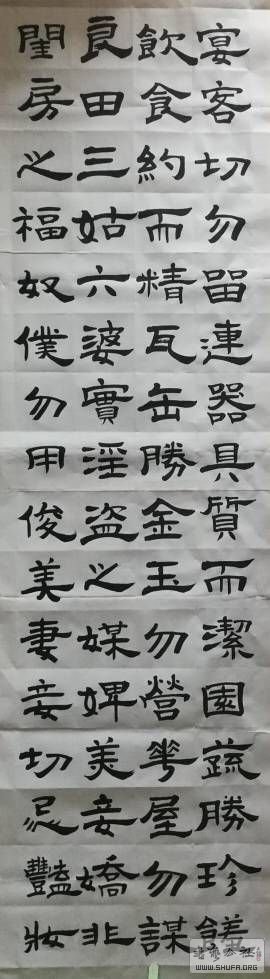 宴客切勿留連器具質而潔園蔬勝珍饈
飲食約而精瓦缶勝金玉勿營華屋勿謀
良田三姑六婆實淫盜之媒婢美妾嬌非
閨房之福奴僕勿用俊美妻妾切忌豔妝
书艺公社
WWW.SHUFA.ORG